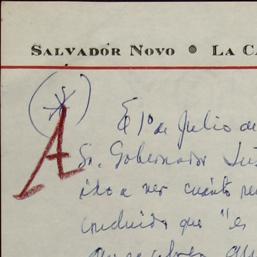 SALVADOR NOVO • LA C
(*)
A
El 1º de Julio de
Sr. Gobernador Luis
ido a ver cuánto
concluido que "es